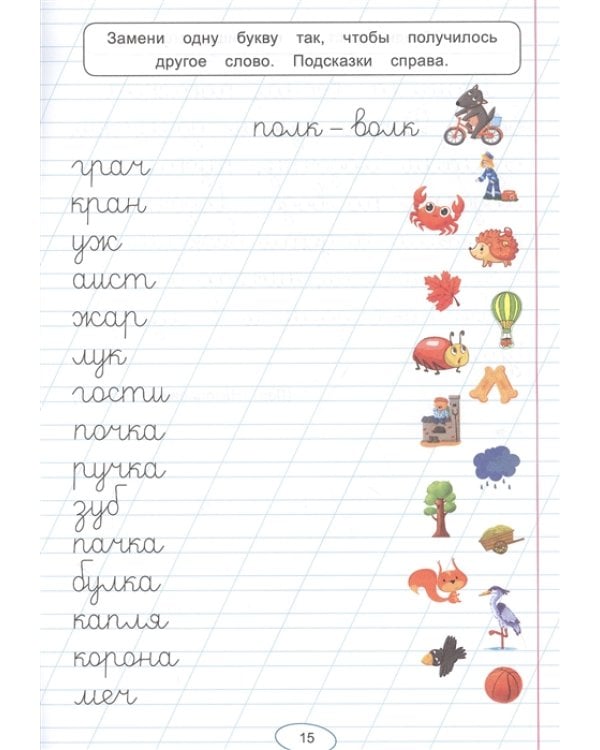 Замени одну букву так, чтобы получилось
другое слово. Подсказки справа.
полк – волк
грач
кран
уж
аист
жар
лук
гости
почка
ручка
зуб
пачка
булка
капля
корона
меч
15